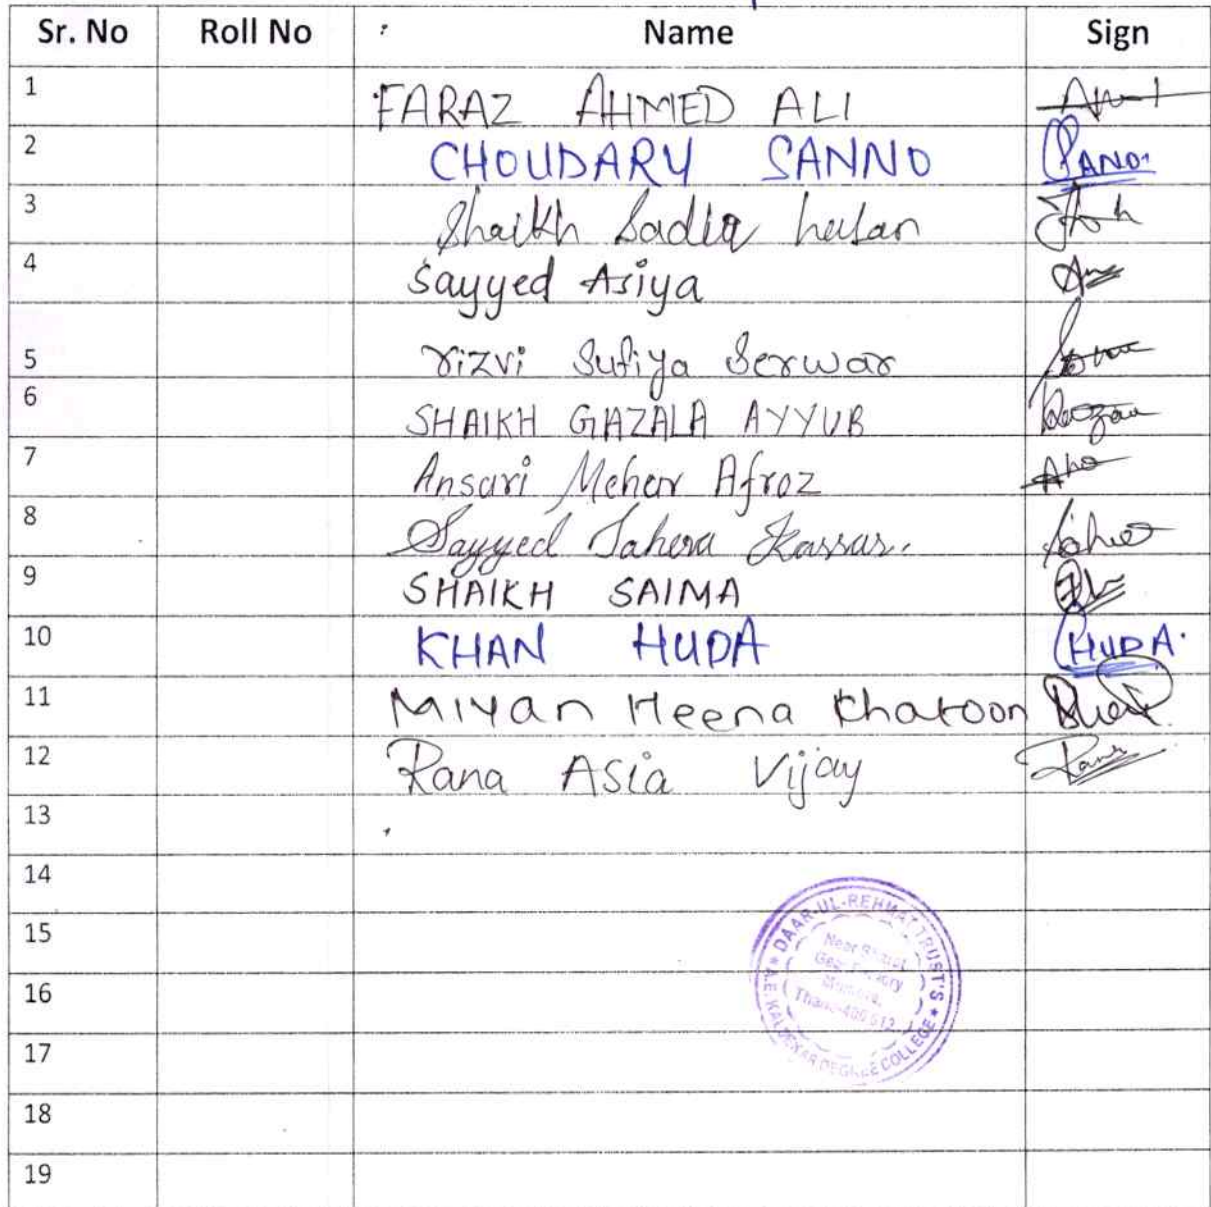 Sr. No Roll No Name Sign
1 FARAZ AHMED ALI
2 CHOUDARY SANNO SANO.
3 Shaikh Sadia
4 Sayyed Asiya
5 rizvi Sufiya Serwar
6 SHAIKH GAZALA AYYUB
7 Ansari Meher Afroz
8 Sayyed Tahera
9 SHAIKH SAIMA
10 KHAN HUDA HUDA.
11 MIYan Heena Khatoon
12 Rana Asia Vijay Rana
13
14
15
16
17
18
19
DAAR-UL-REHMAT TRUST'S
A.E. KALSEKAR DEGREE COLLEGE
Near Bharat
Gear Factory
Mumbra,
Thane-400 612